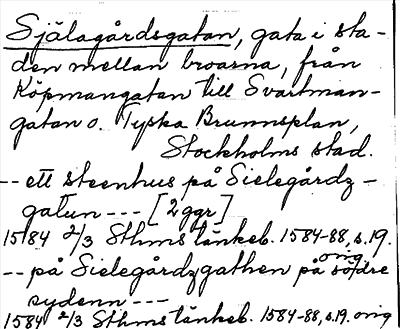 Själagårdsgatan, gata i sta-
den mellan broarna, från
Köpmangatan till Svartman-
gatan o. Tyska Brunnsplan,
Stockholms stad.
-- ett steenhus på Sielegårdz-
gatun --- [2 ggr]
1584 2/3 Sthms tänkeb. 1584-88, s. 19.
orig.
-- på Sielegårdzgathen på södre
sydenn ---
1584 2/3 Sthms tänkeb. 1584-88, s. 19. orig